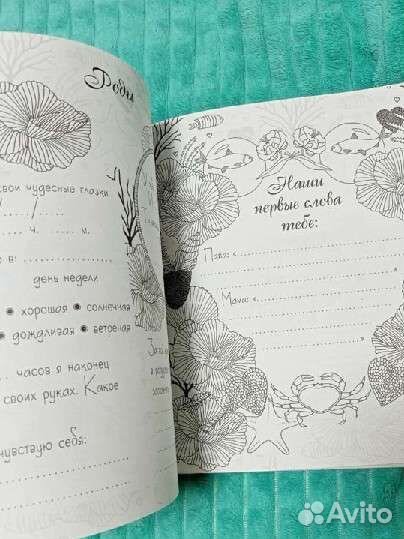 свои чудесные глазки
/ /
ч. м.
в:
день недели
хорошая • солнечная
дождливая • ветреная
часов я наконец
своих руках. Какое
чувствую себя:
Наши
первые слова
тебе:
Папа: «
»
Мама: «
»
Avito